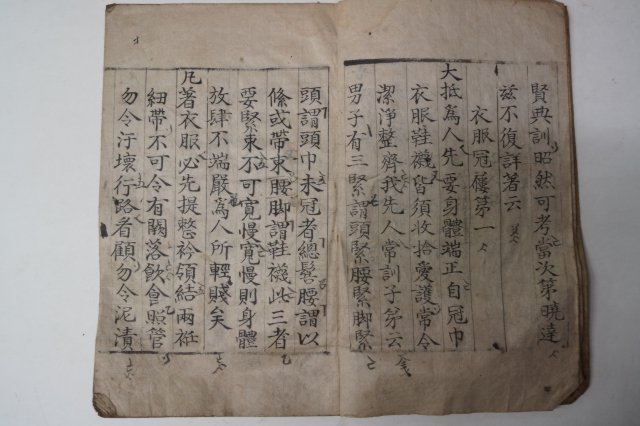 賢典訓昭然可考當次第曉達
茲不復詳著云
衣服冠屨第一
大抵為人先要身體端正自冠巾
衣服鞋襪皆須收拾愛護常令
潔淨整齊我先人常訓子弟云
男子有三緊謂頭緊腰緊脚緊
頭謂頭巾未冠者總髻腰謂以
絛或帶束腰脚謂鞋襪此三者
要緊束不可寬慢寬慢則身體
放肆不端嚴為人所輕賤矣
凡著衣服必先提整衿領結兩衽
紐帶不可令有闕落飲食照管
勿令汙壞行路看顧勿令泥漬